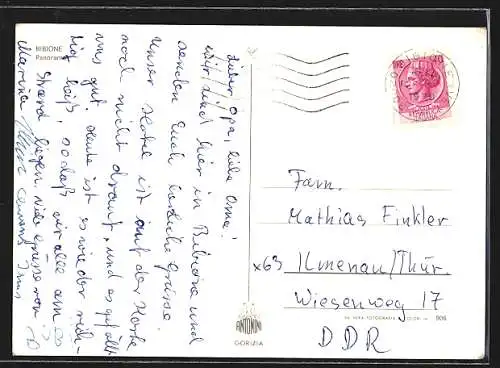 BIBIONE
Panorama
Lieber Opa, liebe Oma!
wir sind hier in Bibione und
senden Euch herzliche Grüsse.
Unser Hotel ist auf der Karte
noch nicht drauf, und es gefällt
uns gut. Heute ist es wieder rich-
tig heiß, sodaß wir alle am
Strand liegen. Viele Grüsse von
Marina
Fam.
Mathias Finkler
x63 Ilmenau/Thür.
Wiesenweg 17
DDR
ANTONINI
GORIZIA